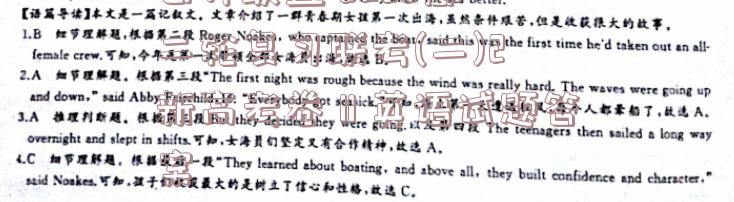 【语篇导读】本文是一篇记叙文。文章介绍了一群青春期女孩第一次出海,虽然条件艰苦,但是收获很大的故事。
1.B 细节理解题。根据第二段 Roger Noakes, who captained the boat, said this was the first time he'd taken out an all-
female crew.可知,今年是第一次 全部女海员出海,选B。
2.A 细节理解题。根据第三段“The first night was rough because the wind was really hard. The waves were going up
and down,” said Abby Fairchild, 16. “Everybody got seasick.”可知, 人都晕船了,故选A。
3.A 推理判断题。根据第三段 But they decided they were going.以及第四段 The teenagers then sailed a long way
overnight and slept in shifts.可知,女海员们坚定又有合作精神,故选A。
4.C 细节理解题。根据最后一段“They learned about boating, and above all, they built confidence and character,”
said Noakes.可知,孩子们收获最大的是树立了信心和性格,故选C。
一轮复习联考(一)
新高考卷 II 英语试题答
案